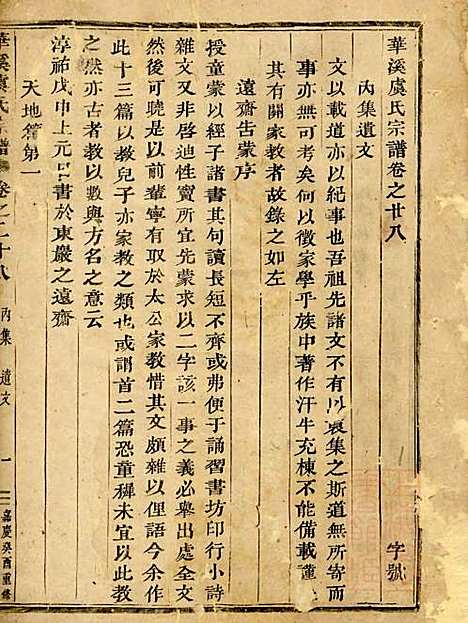 華溪虞氏宗譜卷之廿八
字號
內集遺文
文以載道亦以紀事也吾祖先諸文不有以裒集之斯道無所寄而
事亦無可考矣何以徵家學乎族中著作汗牛充棟不能備載謹
其有關家教者故錄之如左
遠齋告蒙序
授童蒙以經子諸書其句讀長短不齊或弗便于誦習書坊印行小詩
雜文又非啓迪性竇所宜先蒙求以二字該一事之義必舉出處全文
然後可曉是以前輩寧有取於太公家教惜其文頗雜以俚語今余作
此十三篇以教兒子亦家教之類也或謂首二篇恐童穉未宜以此教
之然亦古者教以數與方名之意云
淳祐戊申上元日書於東嚴之遠齋
天地篇第一
華溪虞氏宗譜
卷之二十八
內集
遺文
一
嘉慶癸酉重修